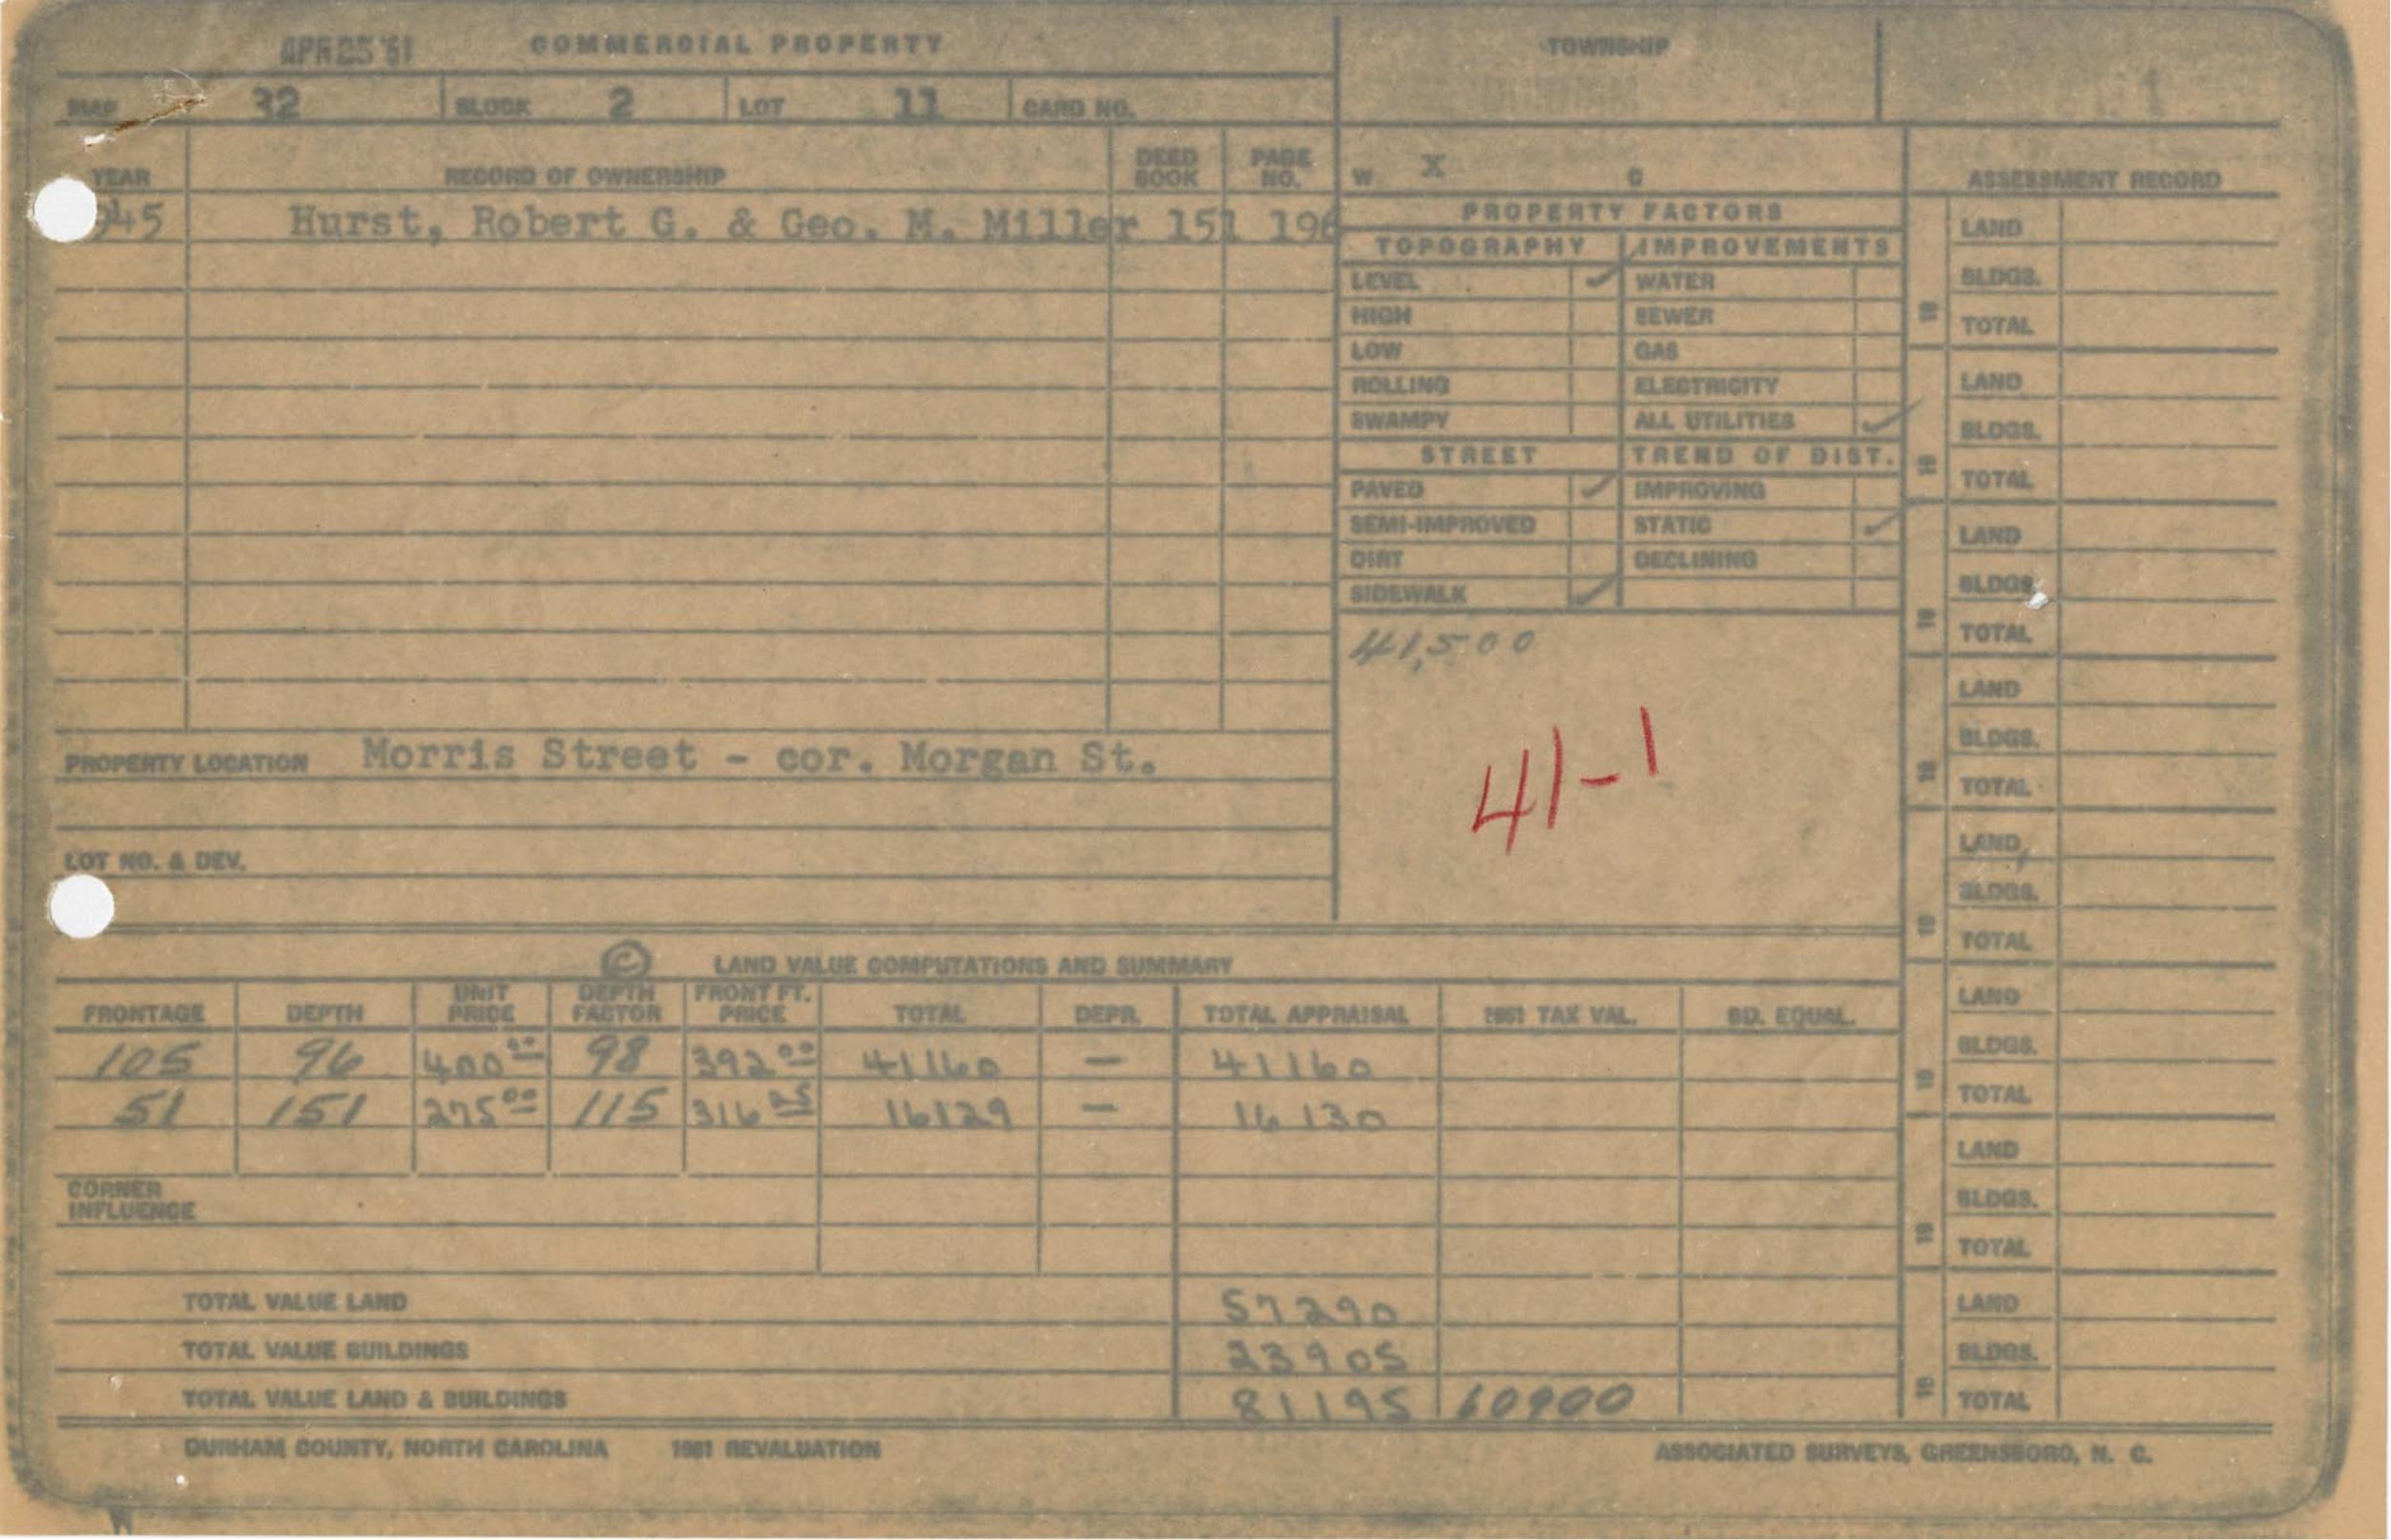 APR 25 '51 COMMERCIAL PROPERTY TOWNSHIP 1
MAP 32 BLOCK 2 LOT 11 CARD NO.
YEAR RECORD OF OWNERSHIP DEED BOOK PAGE NO. W X C ASSESSMENT RECORD
945 Hurst, Robert G. & Geo. M. Miller 151 196
PROPERTY FACTORS
TOPOGRAPHY IMPROVEMENTS
LEVEL ✓ WATER
HIGH SEWER
LOW GAS
ROLLING ELECTRICITY
SWAMPY ALL UTILITIES ✓
STREET TREND OF DIST.
PAVED ✓ IMPROVING
SEMI-IMPROVED STATIC ✓
DIRT DECLINING
SIDEWALK ✓
41,500
41-1
PROPERTY LOCATION Morris Street - cor. Morgan St.
LOT NO. & DEV.
19 LAND
BLDGS.
TOTAL
19 LAND
BLDGS.
TOTAL
19 LAND
BLDGS.
TOTAL
19 LAND
BLDGS.
TOTAL
19 LAND
BLDGS.
TOTAL
19 LAND
BLDGS.
TOTAL
19 LAND
BLDGS.
TOTAL
19 LAND
BLDGS.
TOTAL
C LAND VALUE COMPUTATIONS AND SUMMARY
FRONTAGE DEPTH UNIT PRICE DEPTH FACTOR FRONT FT. PRICE TOTAL DEPR. TOTAL APPRAISAL 1951 TAX VAL. BD. EQUAL.
105 96 400 00 98 392 00 41160 — 41160
51 151 275 00 115 316 25 16129 — 16130
CORNER INFLUENCE
TOTAL VALUE LAND 57290
TOTAL VALUE BUILDINGS 23905
TOTAL VALUE LAND & BUILDINGS 81195 60900
DURHAM COUNTY, NORTH CAROLINA 1951 REVALUATION ASSOCIATED SURVEYS, GREENSBORO, N. C.